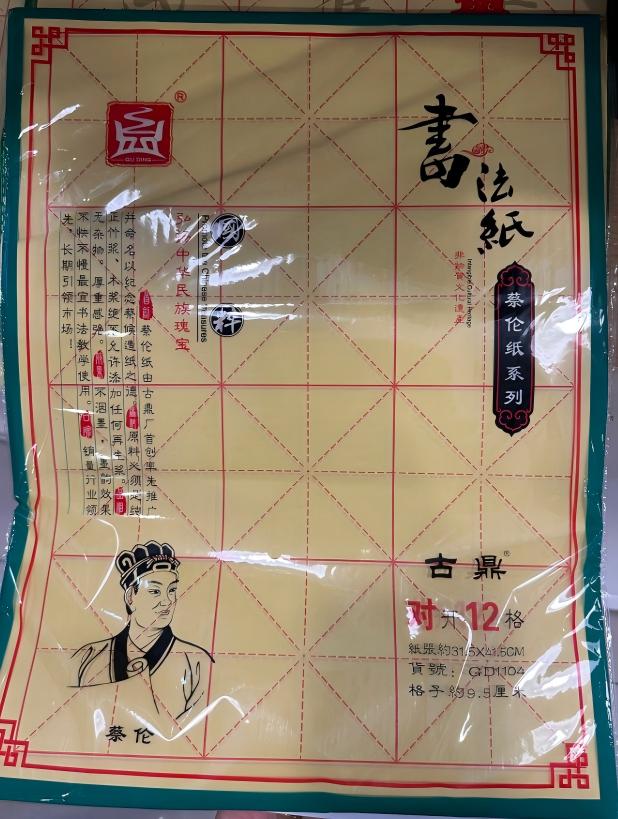 書法紙
非物質文化遺產
Intangible Cultural Heritage
蔡伦纸系列
GU DING
®
國粹
Chinese Treasures
弘扬中华民族瑰宝
首创 蔡伦纸由古鼎厂首创率先推广
并命名以纪念蔡候造纸之德。原料必须是纯
正竹浆、木浆绝不允许添加任何再生浆。
无杂物。厚重感强。不洇墨。墨韵效果
不快不慢最宜书法教学使用。销量行业领
先。长期引领市场！
古鼎®
对开12格
紙張約31.5X41.5CM
貨號：GD1104
格子約9.5厘米
蔡伦